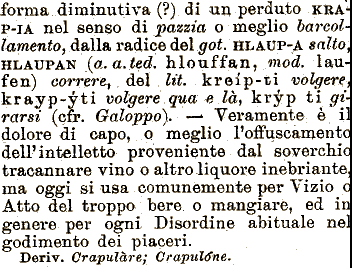 forma diminutiva (?) di un perduto KRA-
P-IA nel senso di pazzia o meglio barcol-
lamento, dalla radice del got. HLAUP-A salto,
HLAUPAN (a. a. ted. hlouffan, mod. lau-
fen) correre, del lit. kreíp-ti volgere,
krayp-ýti volgere qua e là, krýp ti gi-
rarsi (cfr. Galoppo). — Veramente è il
dolore di capo, o meglio l'offuscamento
dell'intelletto proveniente dal soverchio
tracannare vino o altro liquore inebriante,
ma oggi si usa comunemente per Vizio o
Atto del troppo bere o mangiare, ed in
genere per ogni Disordine abituale nel
godimento dei piaceri.
Deriv. Crapulàre; Crapulóne.